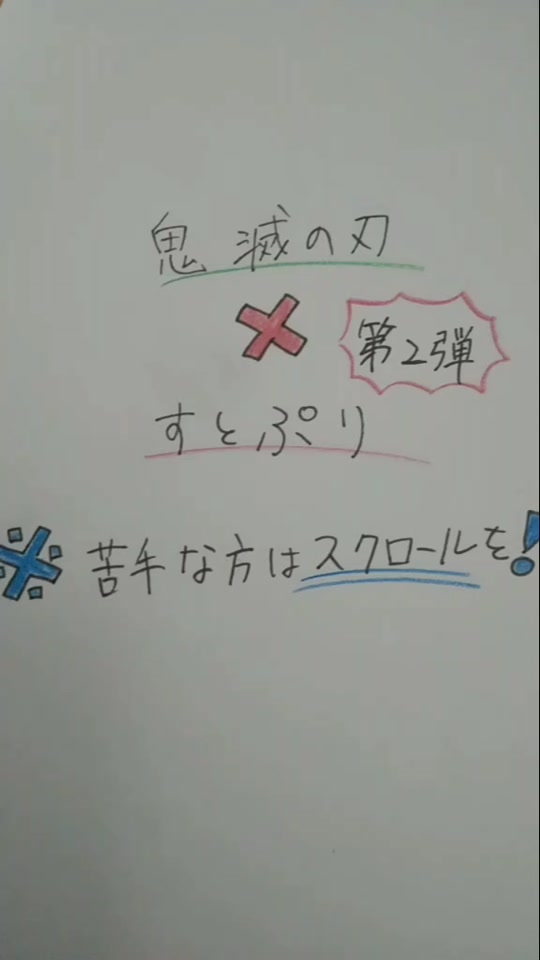 鬼滅の刃
×
第2弾
すとぷり
※苦手な方はスクロールを!